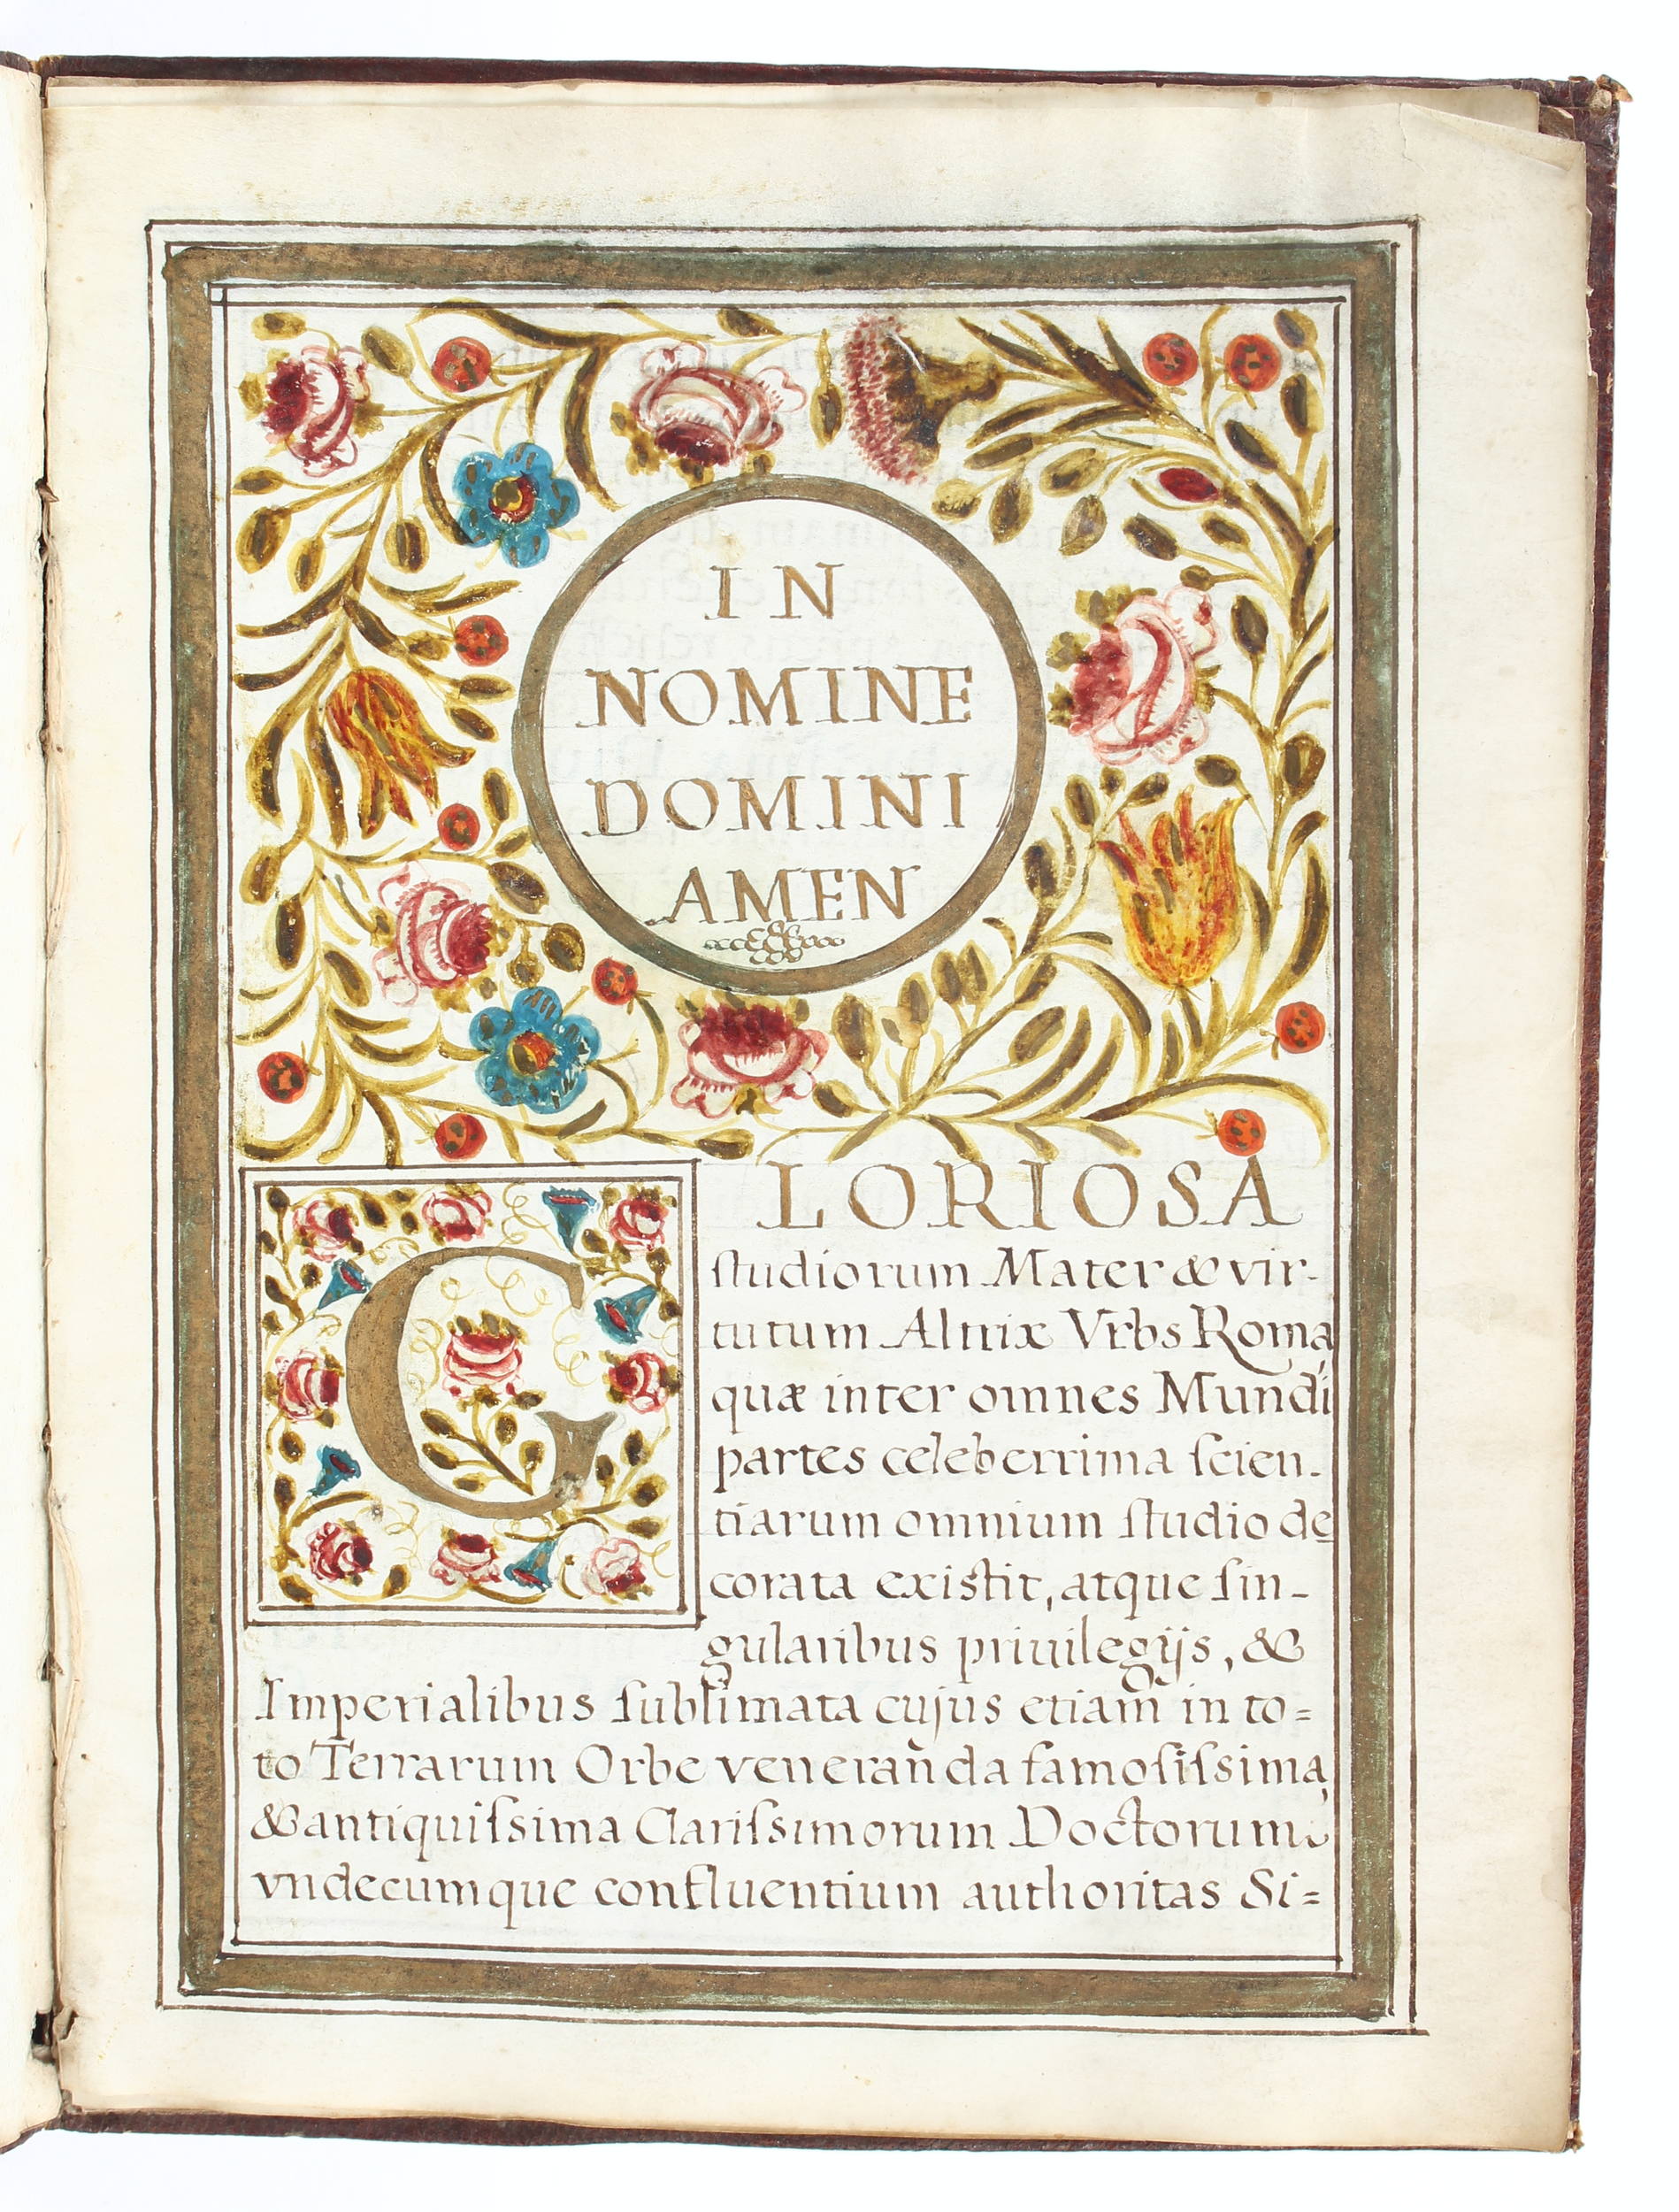 IN
NOMINE
DOMINI
AMEN
GLORIOSA
ſtudiorum Mater & vir-
tutum Altrix Vrbs Roma,
quæ inter omnes Mundi
partes celeberrima ſcien-
tiarum omnium ſtudio de
corata existit, atque ſin-
gularibus priuilegijs, &
Imperialibus ſublimata cujus etiam in to=
to Terrarum Orbe veneranda famoſiſsima,
& antiquiſsima Clariſsimorum Doctorum
vndecumque confluentium authoritas Si=